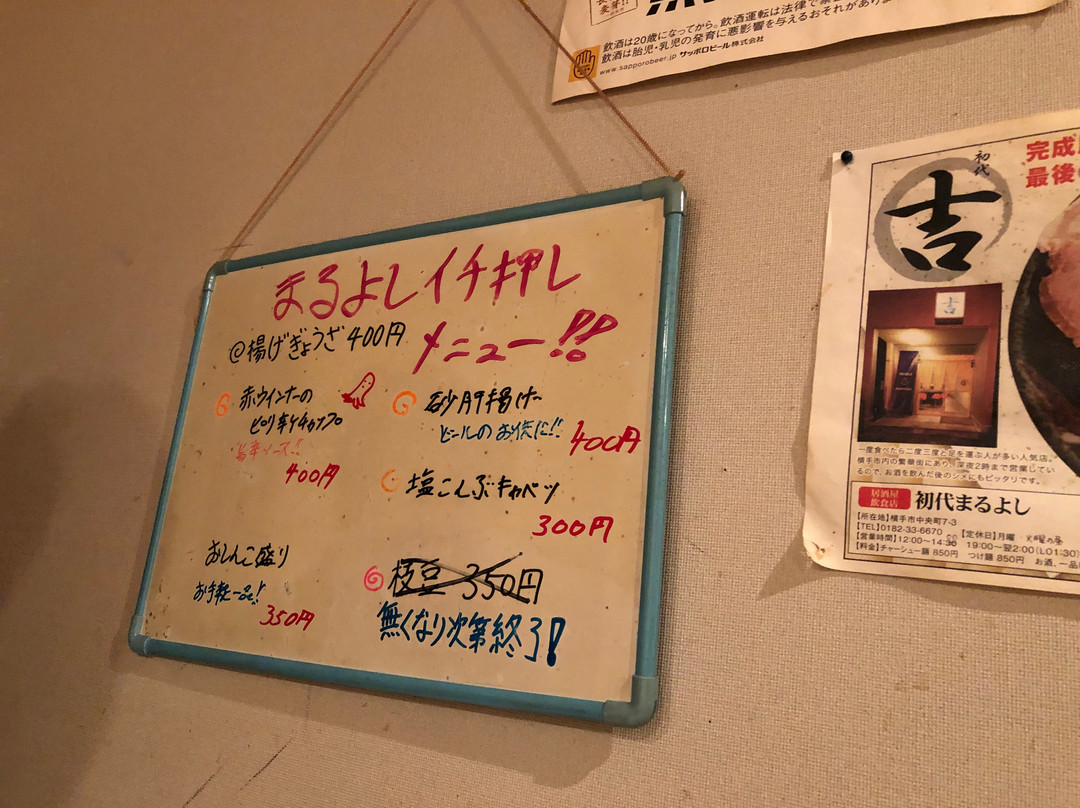 飲酒は20歳になってから。飲酒運転は法律で
飲酒は胎児・乳児の発育に悪影響を与えるおそれがあり
www.sapporobeer.jp サッポロビール株式会社
まるよしイチ押し
メニュー!!
@揚げぎょうざ 400円
赤ウインナーの
ピリ辛ケチャップ
400円
砂肝揚げ
ビールのお供に!!
400円
塩こんぶキャベツ
300円
おしんこ盛り
お手軽一品!
350円
枝豆 350円
無くなり次第終了!
初代
吉
完成
最後
吉
一度食べたら二度三度と足を運ぶ人が多い人気店。
横手市内の繁華街にあり、深夜2時まで営業してい
るので、お酒を飲んだ後のシメにもピッタリです。
居酒屋
飲食店
初代まるよし
【所在地】横手市中央町7-3
【TEL】0182-33-6670
【定休日】月曜
【営業時間】12:00〜14:30 19:00〜翌2:00(LO1:30)
【料金】チャーシュー麺 850円 つけ麺 850円 お酒、一品